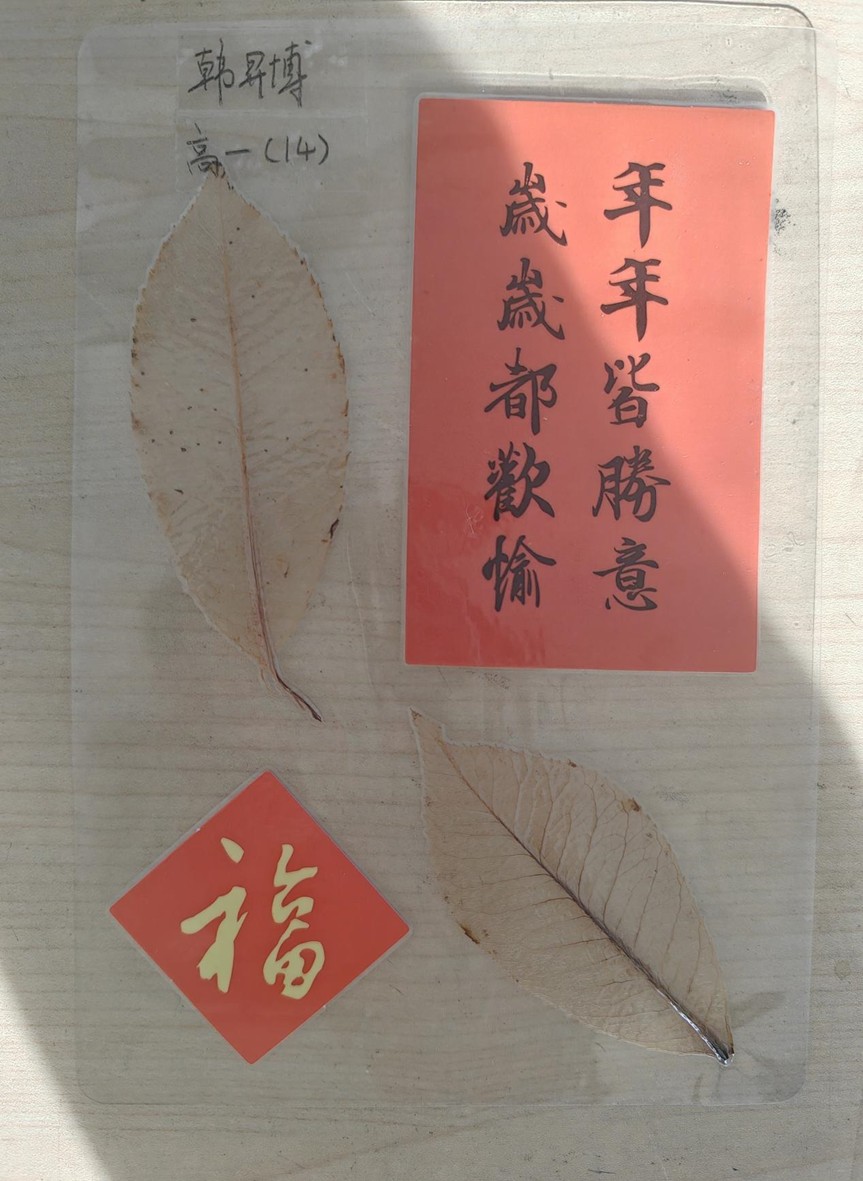 韩昇博
高一(14)
年年皆勝意
歲歲都歡愉
福